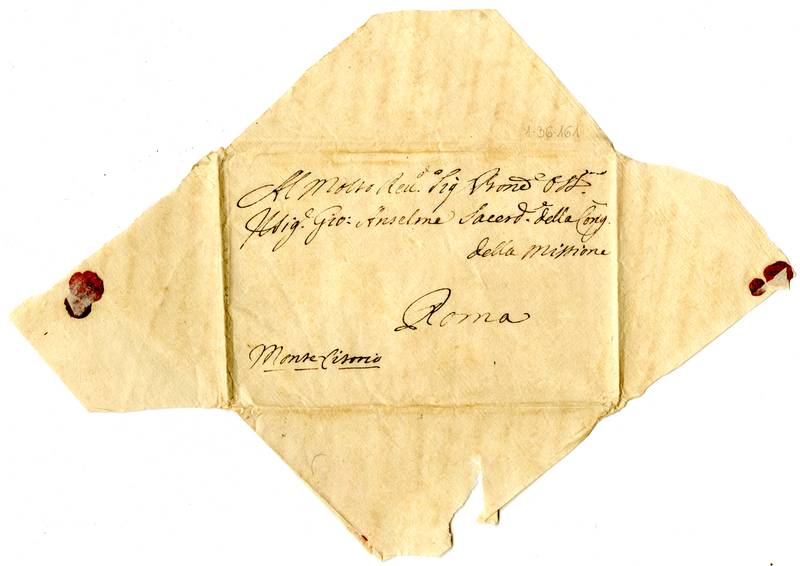 1-36-161
Al Molto Reu.do Sig Pron.e Oss.mo
Il Sig.r Gio: Anselme Sacerd.e della Cong.
della Missione
Roma
Monte Citorio